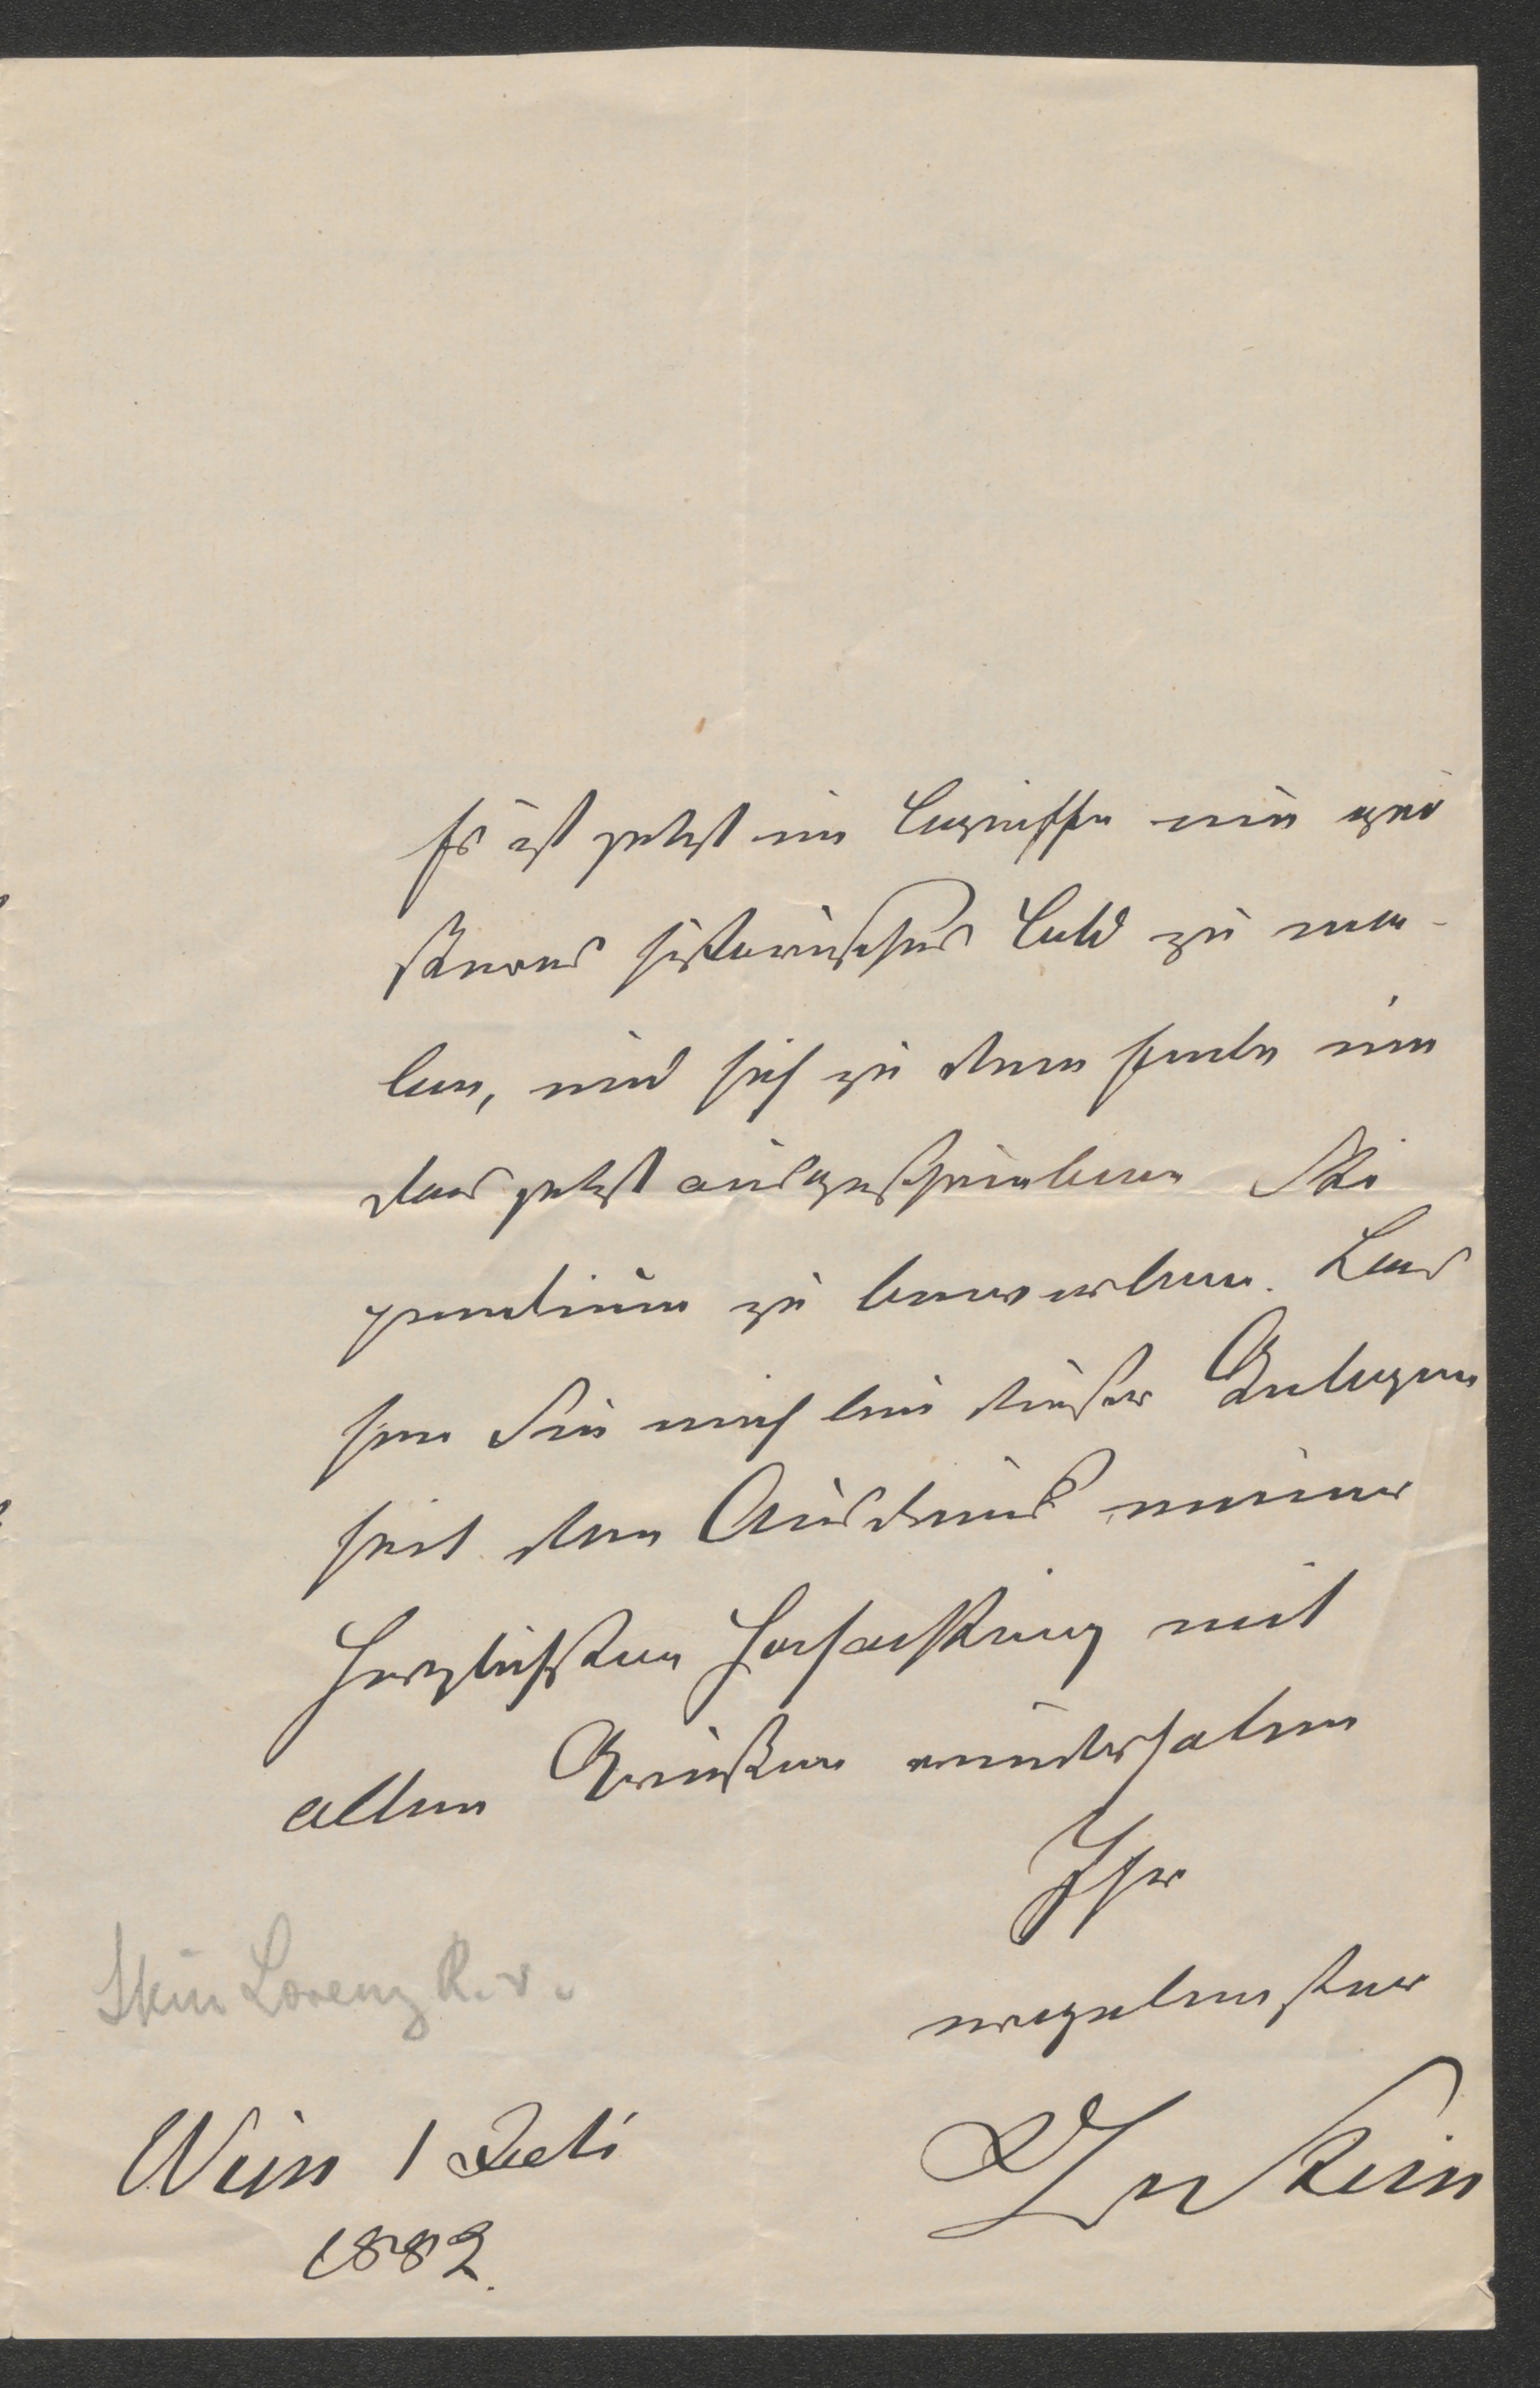 Er ist jetzt im Begriffe ein grö
ßeres historisches Bild zu ma-
len, und sich zu dem Ende um
das jetzt ausgeschriebene Sti
pendium zu bewerben. Las
sen Sie mich bei dieser Gelegen
heit den Ausdruck meiner
herzlichsten Hochachtung mit
allen Grüßen wiederholen
Ihr
ergebenster
LvStein
Stein Lorenz R. v.
Wien 1 Juli
1882.